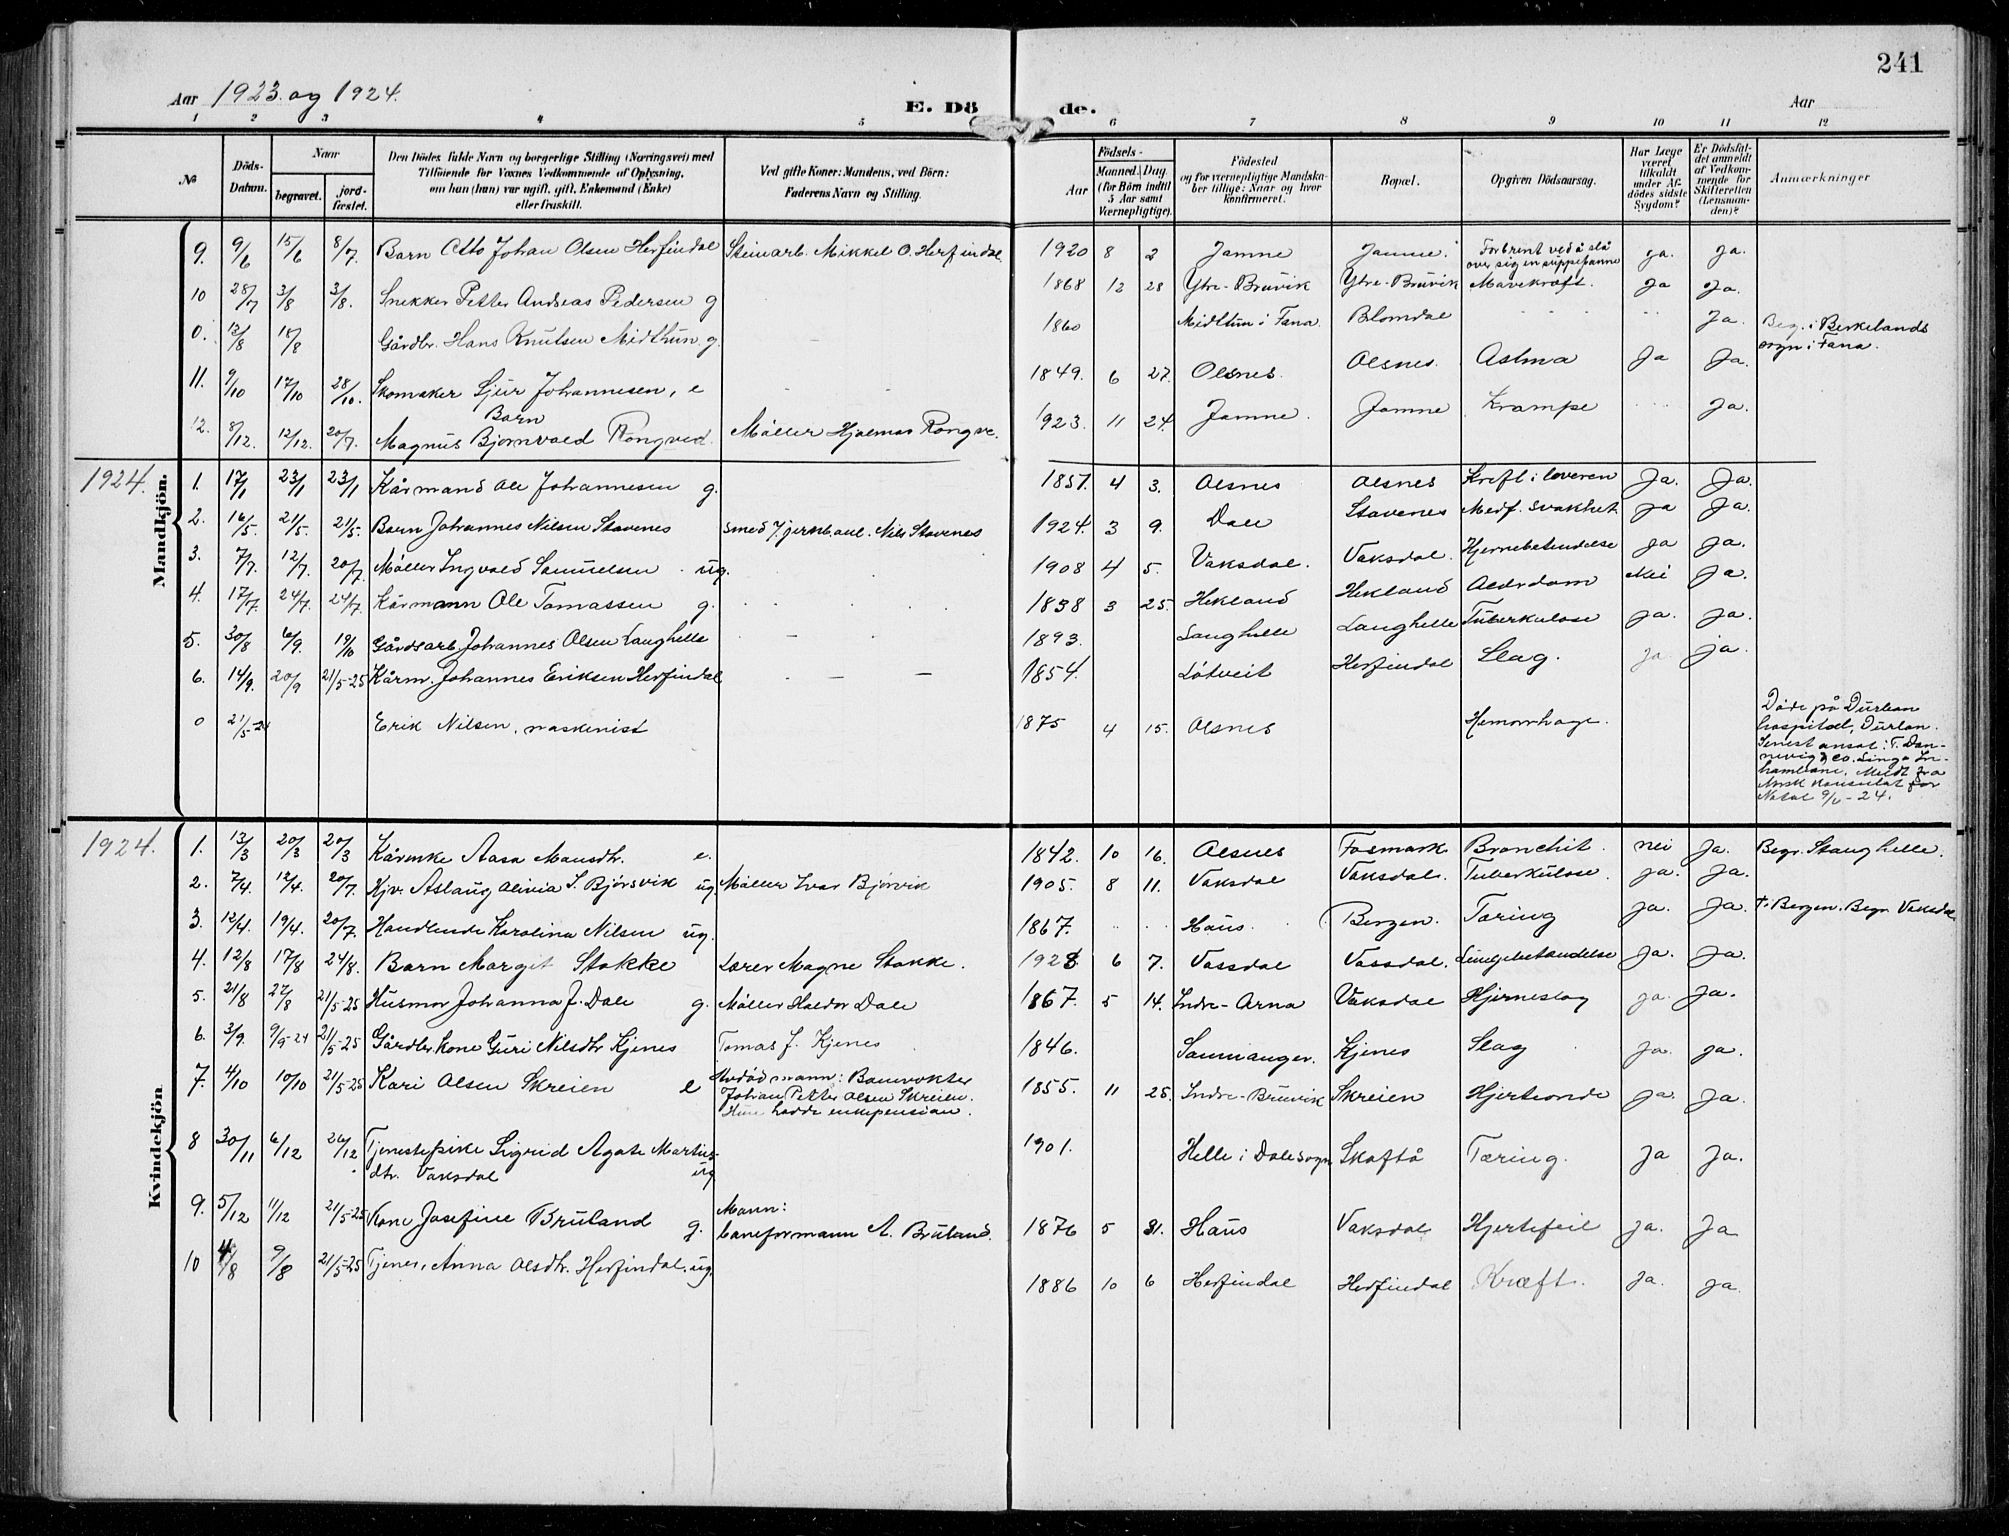 241
Aar 1923 og 1924.
E. Dö de.
Aar
1 2 3 4 5 6 7 8 9 10 11 12
№
Döds-Datum.
Naar
begravet.
jord-fæstet.
Den Dödes fulde Navn og borgerlige Stilling (Næringsvei) med
Tilföiende for Voxnes Vedkommende af Oplysning,
om han (hun) var ugift, gift, Enkemand (Enke)
eller fraskilt.
Ved gifte Koner: Mandens, ved Börn:
Faderens Navn og Stilling.
Födsels-
Aar
Maaned. Dag.
(for Börn indtil
5 Aar samt
Værnepligtige).
Födested
og for værnepligtige Mandska-
ber tillige: Naar og hvor
konfirmeret.
Bopæl.
Opgiven Dödsaarsag.
Har Læge
været
tilkaldt
under Af-
dödes sidste
Sygdom?
Er Dödsfal-
det anmeldt
af Vedkom-
mende for
Skifteretten
(Lensman-
den)?
Anmærkninger
Mandkjön.
9. 9/6 15/6 8/7. Barn Otto Johan Olsen Herfindal Steinarb. Mikkel O. Herfindal 1920 8 2 Jamne Jamne. Forbrent ved å slå over sig en suppepanne ja. ja.
10 28/7 3/8 3/8. Snekker Petter Andreas Pedersen g 1868 12 28 Ytre-Bruvik Ytre-Bruvik Mavekræft. Ja Ja.
0. 12/8 18/8 Gårdbr. Hans Knutsen Midthun. g. 1860 Midttun i Fana Blomdal Ja. Beg. i Berkelands sogn i Fana.
11. 9/10 17/10 28/10. Skomaker Sjur Johannesen, e 1849. 6 27. Olsnes. Olsnes. Astma Ja Ja.
12. 8/12. 12/12. 20/7. Barn Magnus Bjørnvald Rongved. Møller Hjalmar Rongve. 1923. 11 24. Jamne. Jamne Krampe Ja.
1924.
1. 17/1 23/1 23/1 Kårmand Ole Johannesen g. 1851. 4 3. Olsnes Olsnes Kreft i leveren Ja. Ja.
2. 16/5. 21/5. 21/5. Barn Johannes Nilsen Stavenes smed v. jernb. anl. Nils Stavenes 1924. 3 9. Dale Stavenes Medf. svakhet ja Ja.
3. 7/7. 12/7. 20/7. Møller Ingvald Samuelsen ug. 1908 4 5. Vaksdal. Vaksdal. Hjernebetendelse ja Ja.
4. 17/7. 24/7. 24/7. Kårmann Ole Tomassen g. 1838 3 25. Hekland Hekland Alderdom Nei Ja.
5. 30/8 6/9. 19/10 Gårdsarb. Johannes Olsen Langhelle 1893. Langhelle Langhelle Tuberkulose ja. ja.
6. 14/9. 20/9 21/5-25 Kårm. Johannes Eriksen Herfindal 1854. Løtveit Herfindal Slag. ja ja.
0 21/5-24 Erik Nilsen, maskinist 1875 4 15. Olsnes Hemorrhage. Døde på Durban hospital, Durban. Senest ansat i T. Dannevig & Co. Linga Inhambane. Meldt fra Norsk konsulat for Natal 9/6-24.
Kvindekjön
1924.
1. 13/3 20/3 20/3 Kårenke Aasa Monsdtr. e. 1842. 10 16. Olsnes Fosmark Bronchit. nei Ja. Begr. Stanghelle.
2. 7/4. 12/4. 20/7. Hjv. Aslaug Olivia I. Bjørsvik ug. Møller Ivar Bjørsvik 1905. 8 11. Vaksdal Vaksdal. Tuberkulose. ja. Ja.
3. 12/4. 19/4. 20/7. Handlende Karolina Nilsen ug. 1867. Haus. Bergen. Tæring ja. Ja. † i Bergen. Begr. Vaksdal
4. 12/8 17/8 24/8. Barn Margit Stokke Lærer Magne Stokke. 1923 6 7. Vassdal Vassdal. Lungebetendelse Ja. Ja.
5. 21/8 27/8 21/5-25 Husmor Johanna J. Dale g. Møller Haldor Dale 1867. 5 14. Indre-Arna Vaksdal Hjerneslag ja. Ja.
6. 3/9. 9/9-24 21/5-25 Gårdbr. kone Guri Nilsdtr. Kjenes Tomas J. Kjenes 1846. Samnanger. Kjenes Slag ja. ja.
7. 4/10 10/10 21/5-25 Kari Olsen Skreien e Avdød mann: Banevokter Johan Petter Olsen Skreien. Hun hadde enkepension. 1855. 11 25. Indre-Bruvik Skreien Hjerteonde ja. Ja.
8 30/11 6/12 26/12 Tjenestepike Sigrid Agate Martins-dtr. Vaksdal ug 1901. Helle i Dale sogn Skaftå Tæring. Ja Ja.
9. 5/12 11/12 21/5-25 Kone Josefine Bruland g. Mann: baneformann A. Bruland. 1876 5 31. Haus Vaksdal Hjertefeil Ja. Ja
10 4/8 9/8 21/5-25 Tjenes. Anna Olsdtr. Herfindal. ug. 1886 10 6 Herfindal Herfindal Kræft. Ja. Ja